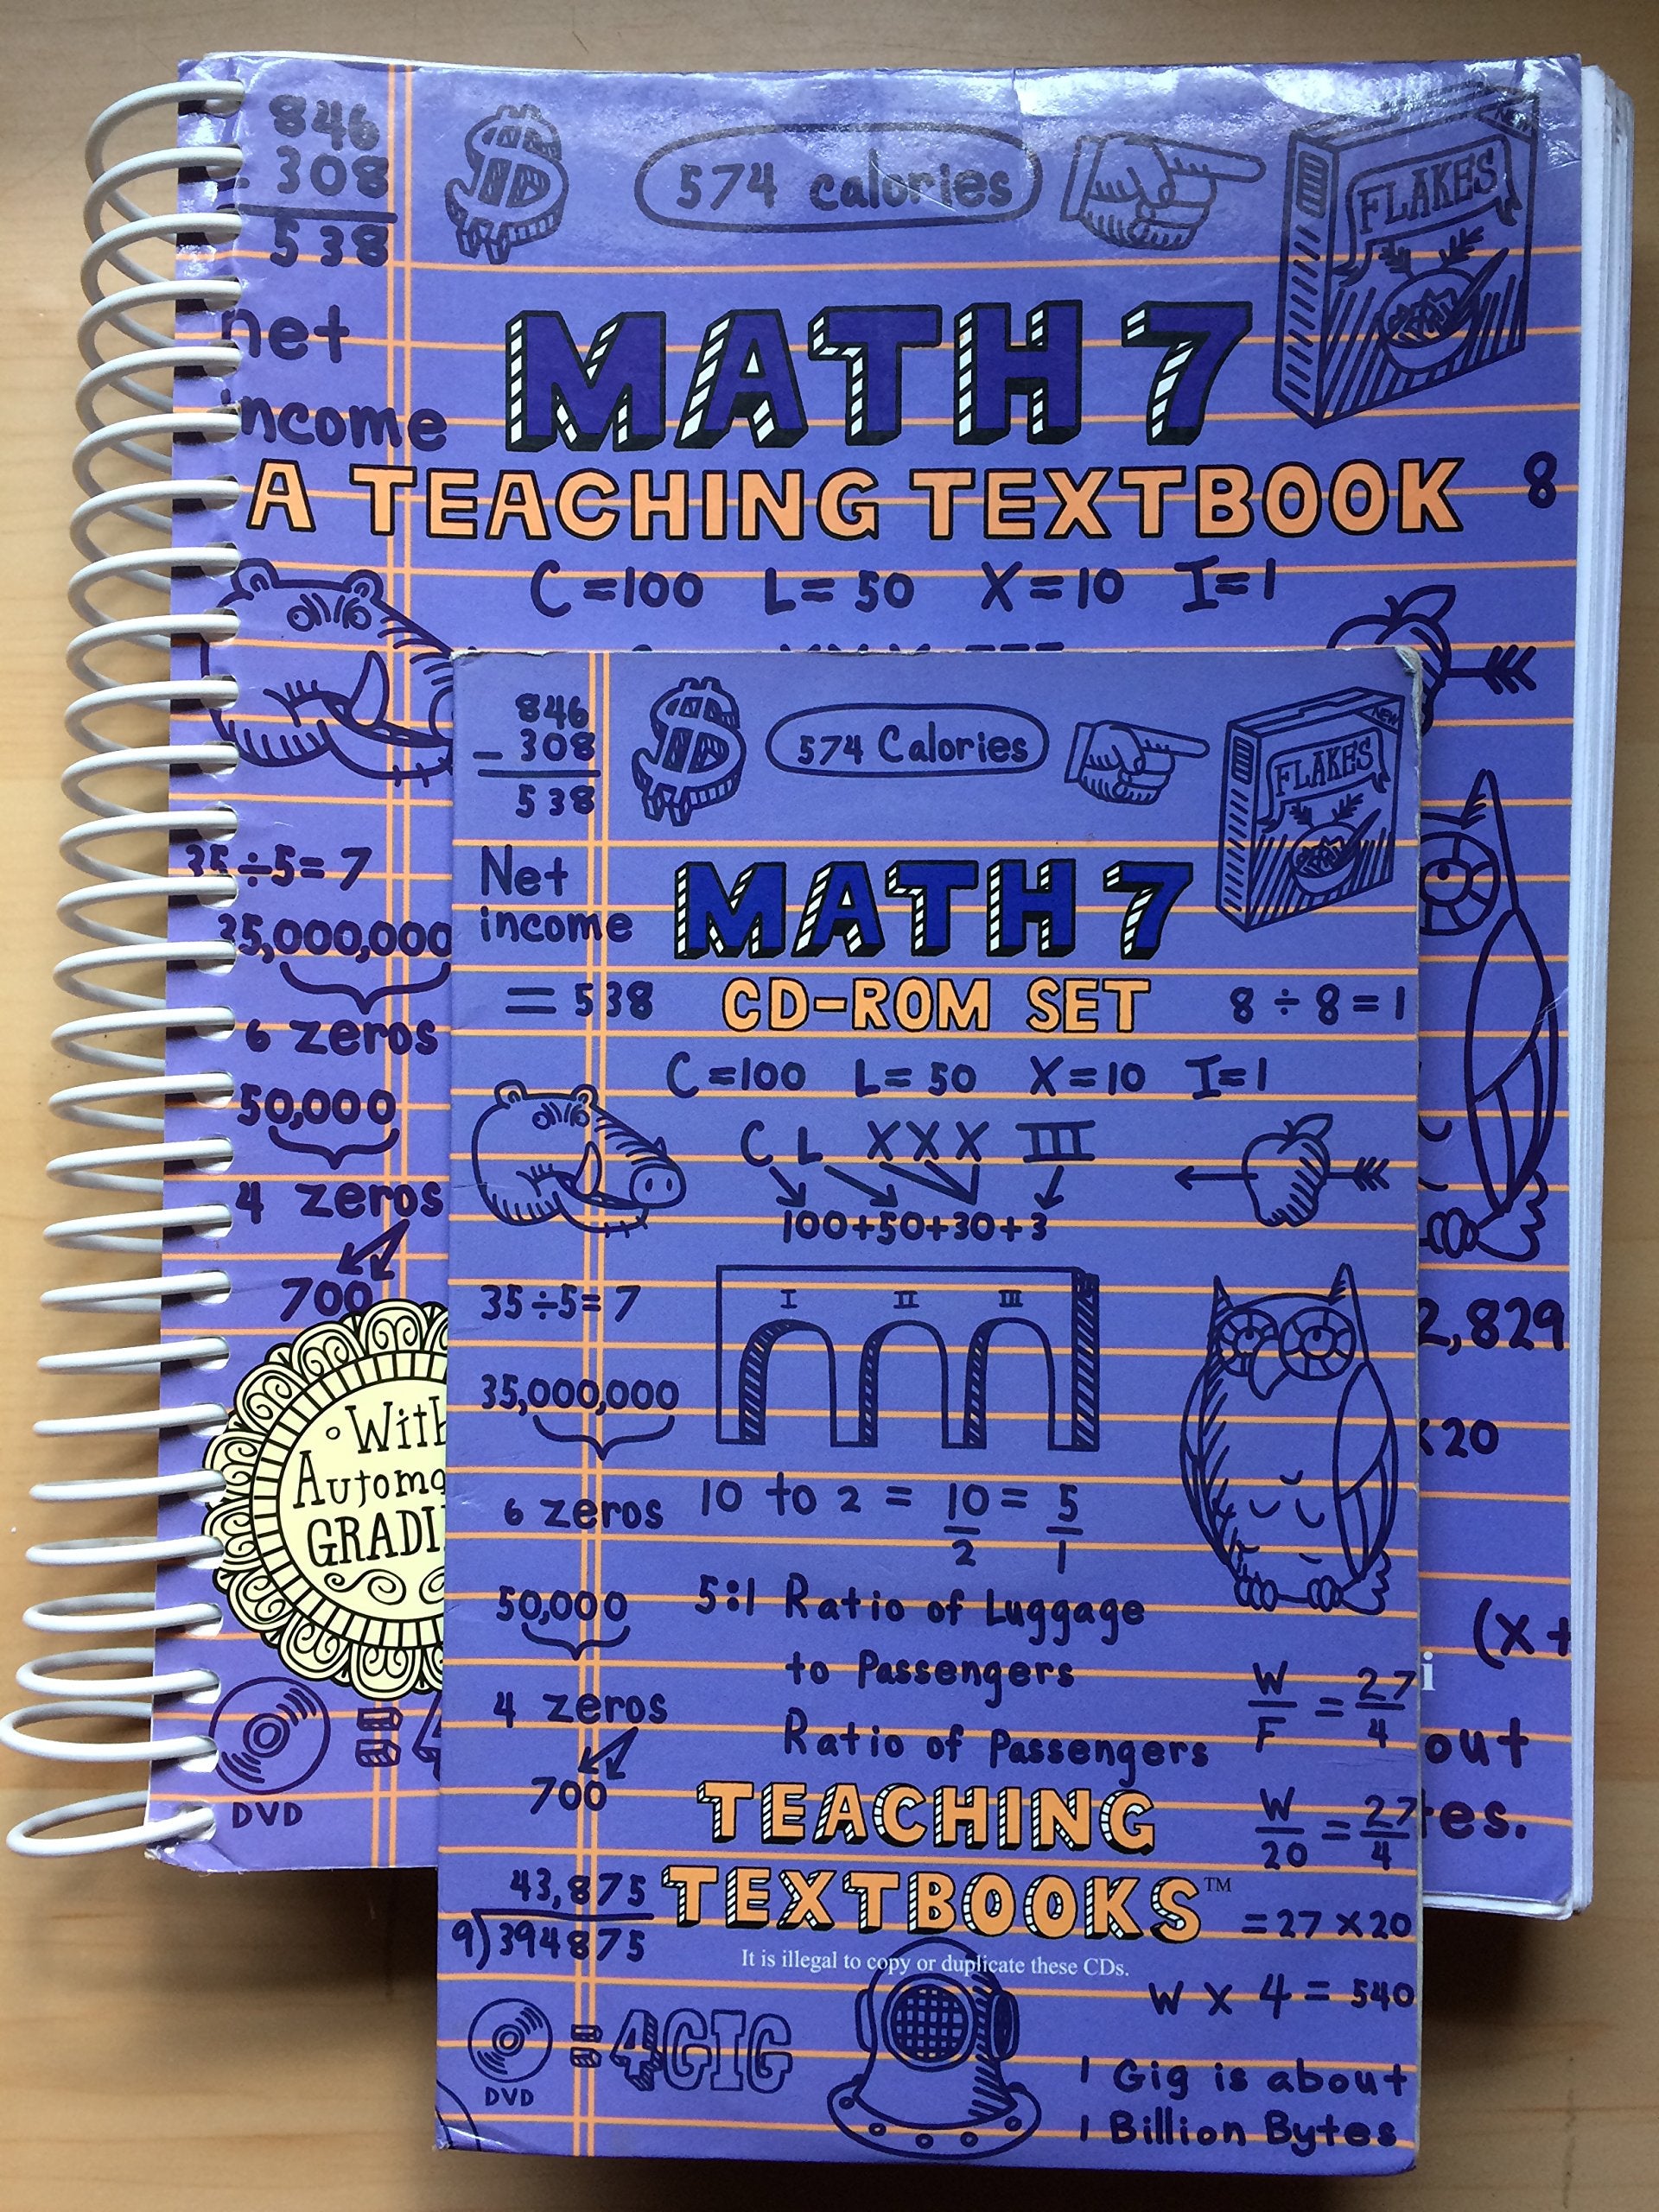 846
- 308
538
574 calories
FLAKES
NEW
net
income
MATH 7
A TEACHING TEXTBOOK
8
C=100 L=50 X=10 I=1
35÷5=7
35,000,000
6 zeros
50,000
4 zeros
700
With
GRADI
DVD
= 4
2,829
x20
(x+
i
out
es.
846
- 308
538
574 Calories
FLAKES
NEW
Net
income
= 538
MATH 7
CD-ROM SET
8÷8=1
C=100 L=50 X=10 I=1
C L XXX III
100+50+30+3
35÷5=7
I II III
35,000,000
6 zeros
10 to 2 = 10/2 = 5/1
50,000
5:1 Ratio of Luggage
to Passengers
4 zeros
Ratio of Passengers
W/F = 27/4
700
TEACHING
TEXTBOOKS™
W/20 = 27/4
43,875
9)394875
= 27 x 20
It is illegal to copy or duplicate these CDs.
W x 4 = 540
DVD
= 4GIG
1 Gig is about
1 Billion Bytes